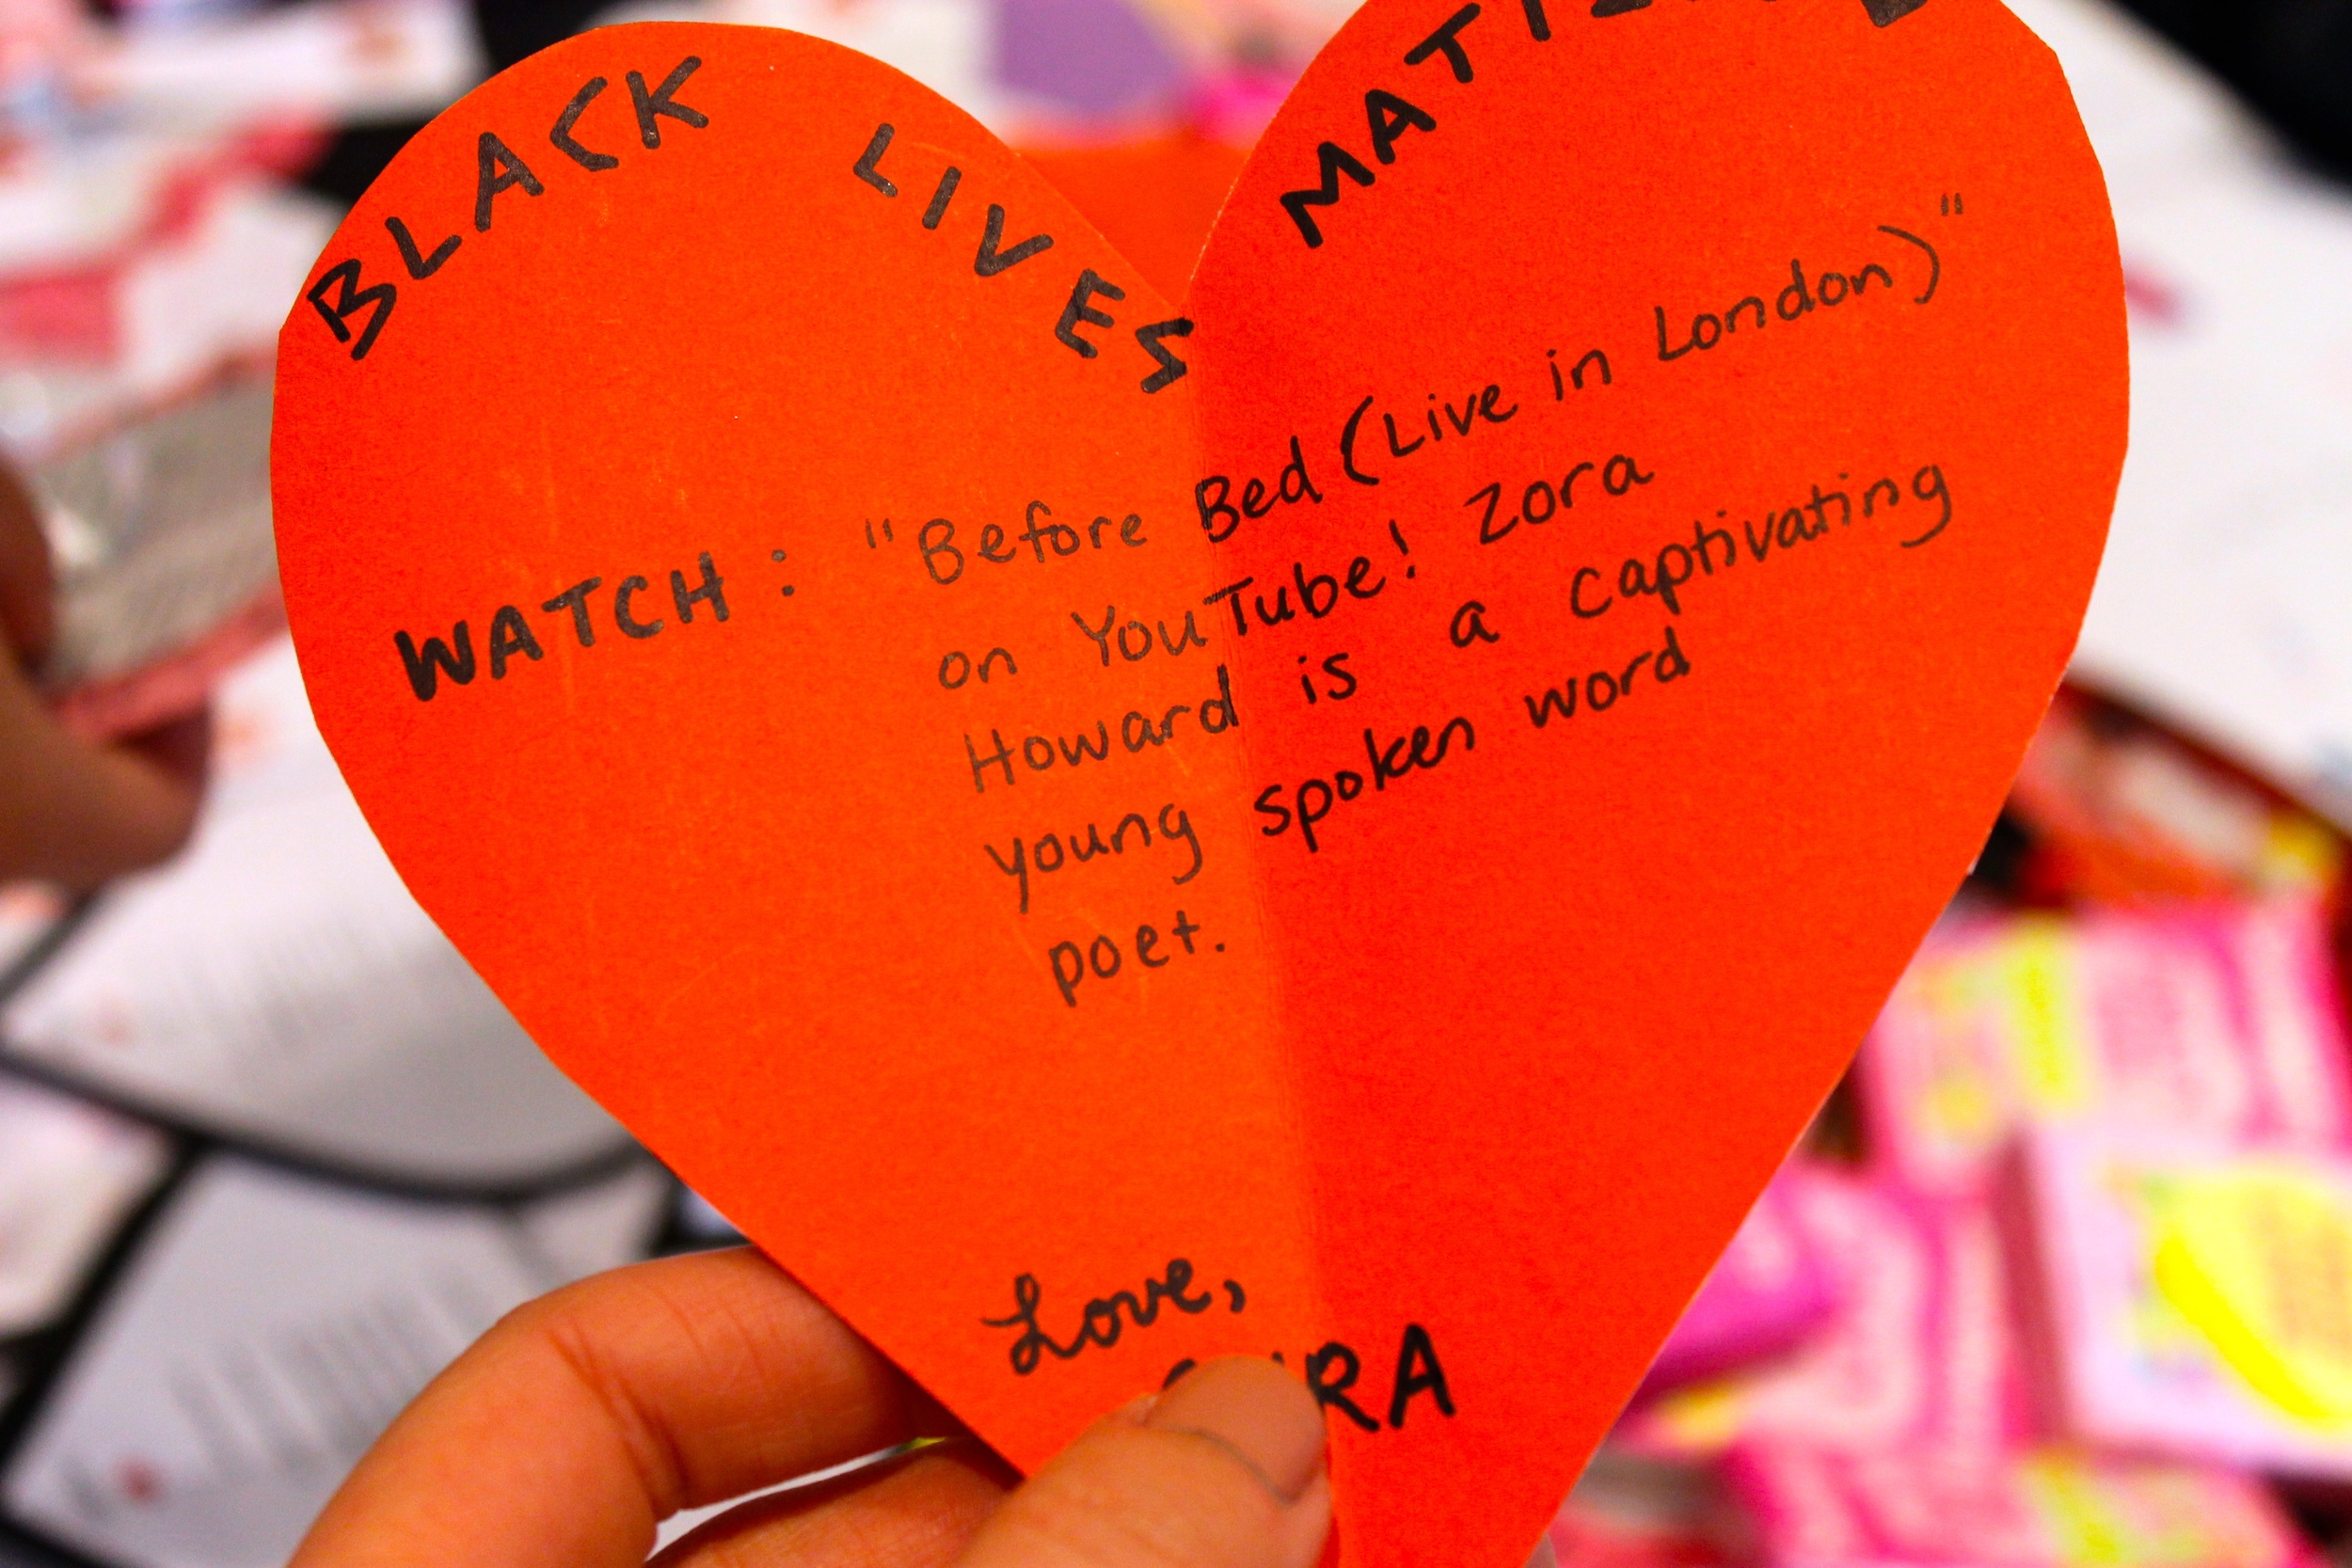 BLACK LIVES
WATCH: "Before Bed (Live in London)"
on YouTube! Zora
Howard is a captivating
young spoken word
poet.
Love,